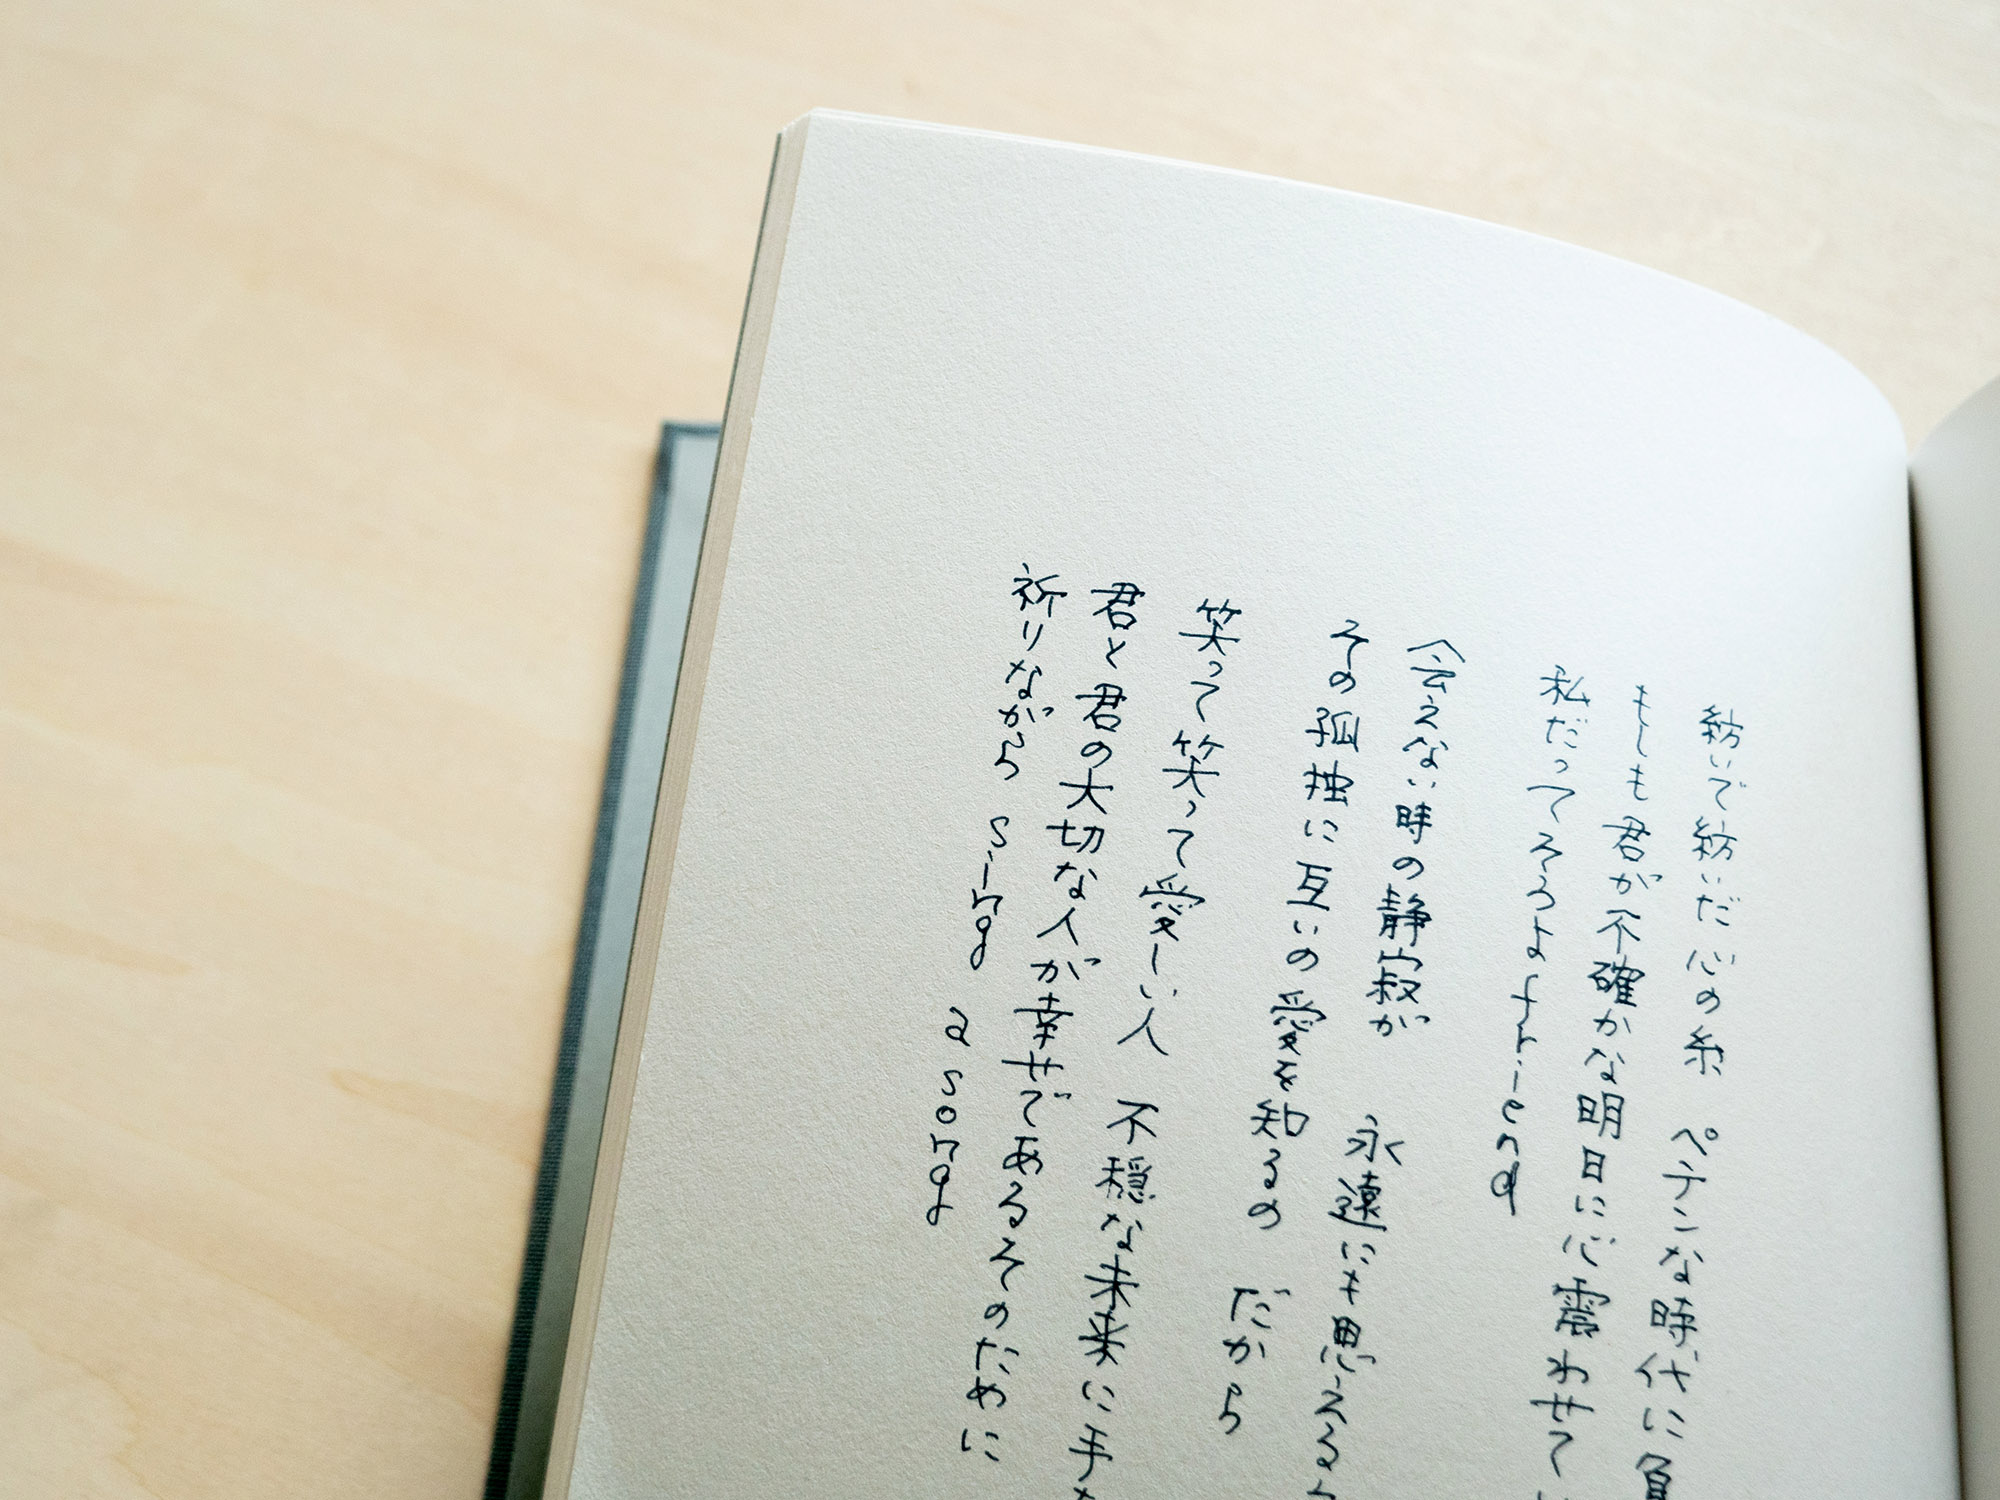 紡いで紡いだ心の糸　ペテンな時代に負
もしも君が不確かな明日に心震わせてい
私だってそうよfriend
会えない時の静寂が　永遠にも思えるよ
その孤独に互いの愛を知るの　だから
笑って笑って愛しい人　不穏な未来に手を
君と君の大切な人が幸せであるそのために
祈りながら sing a song